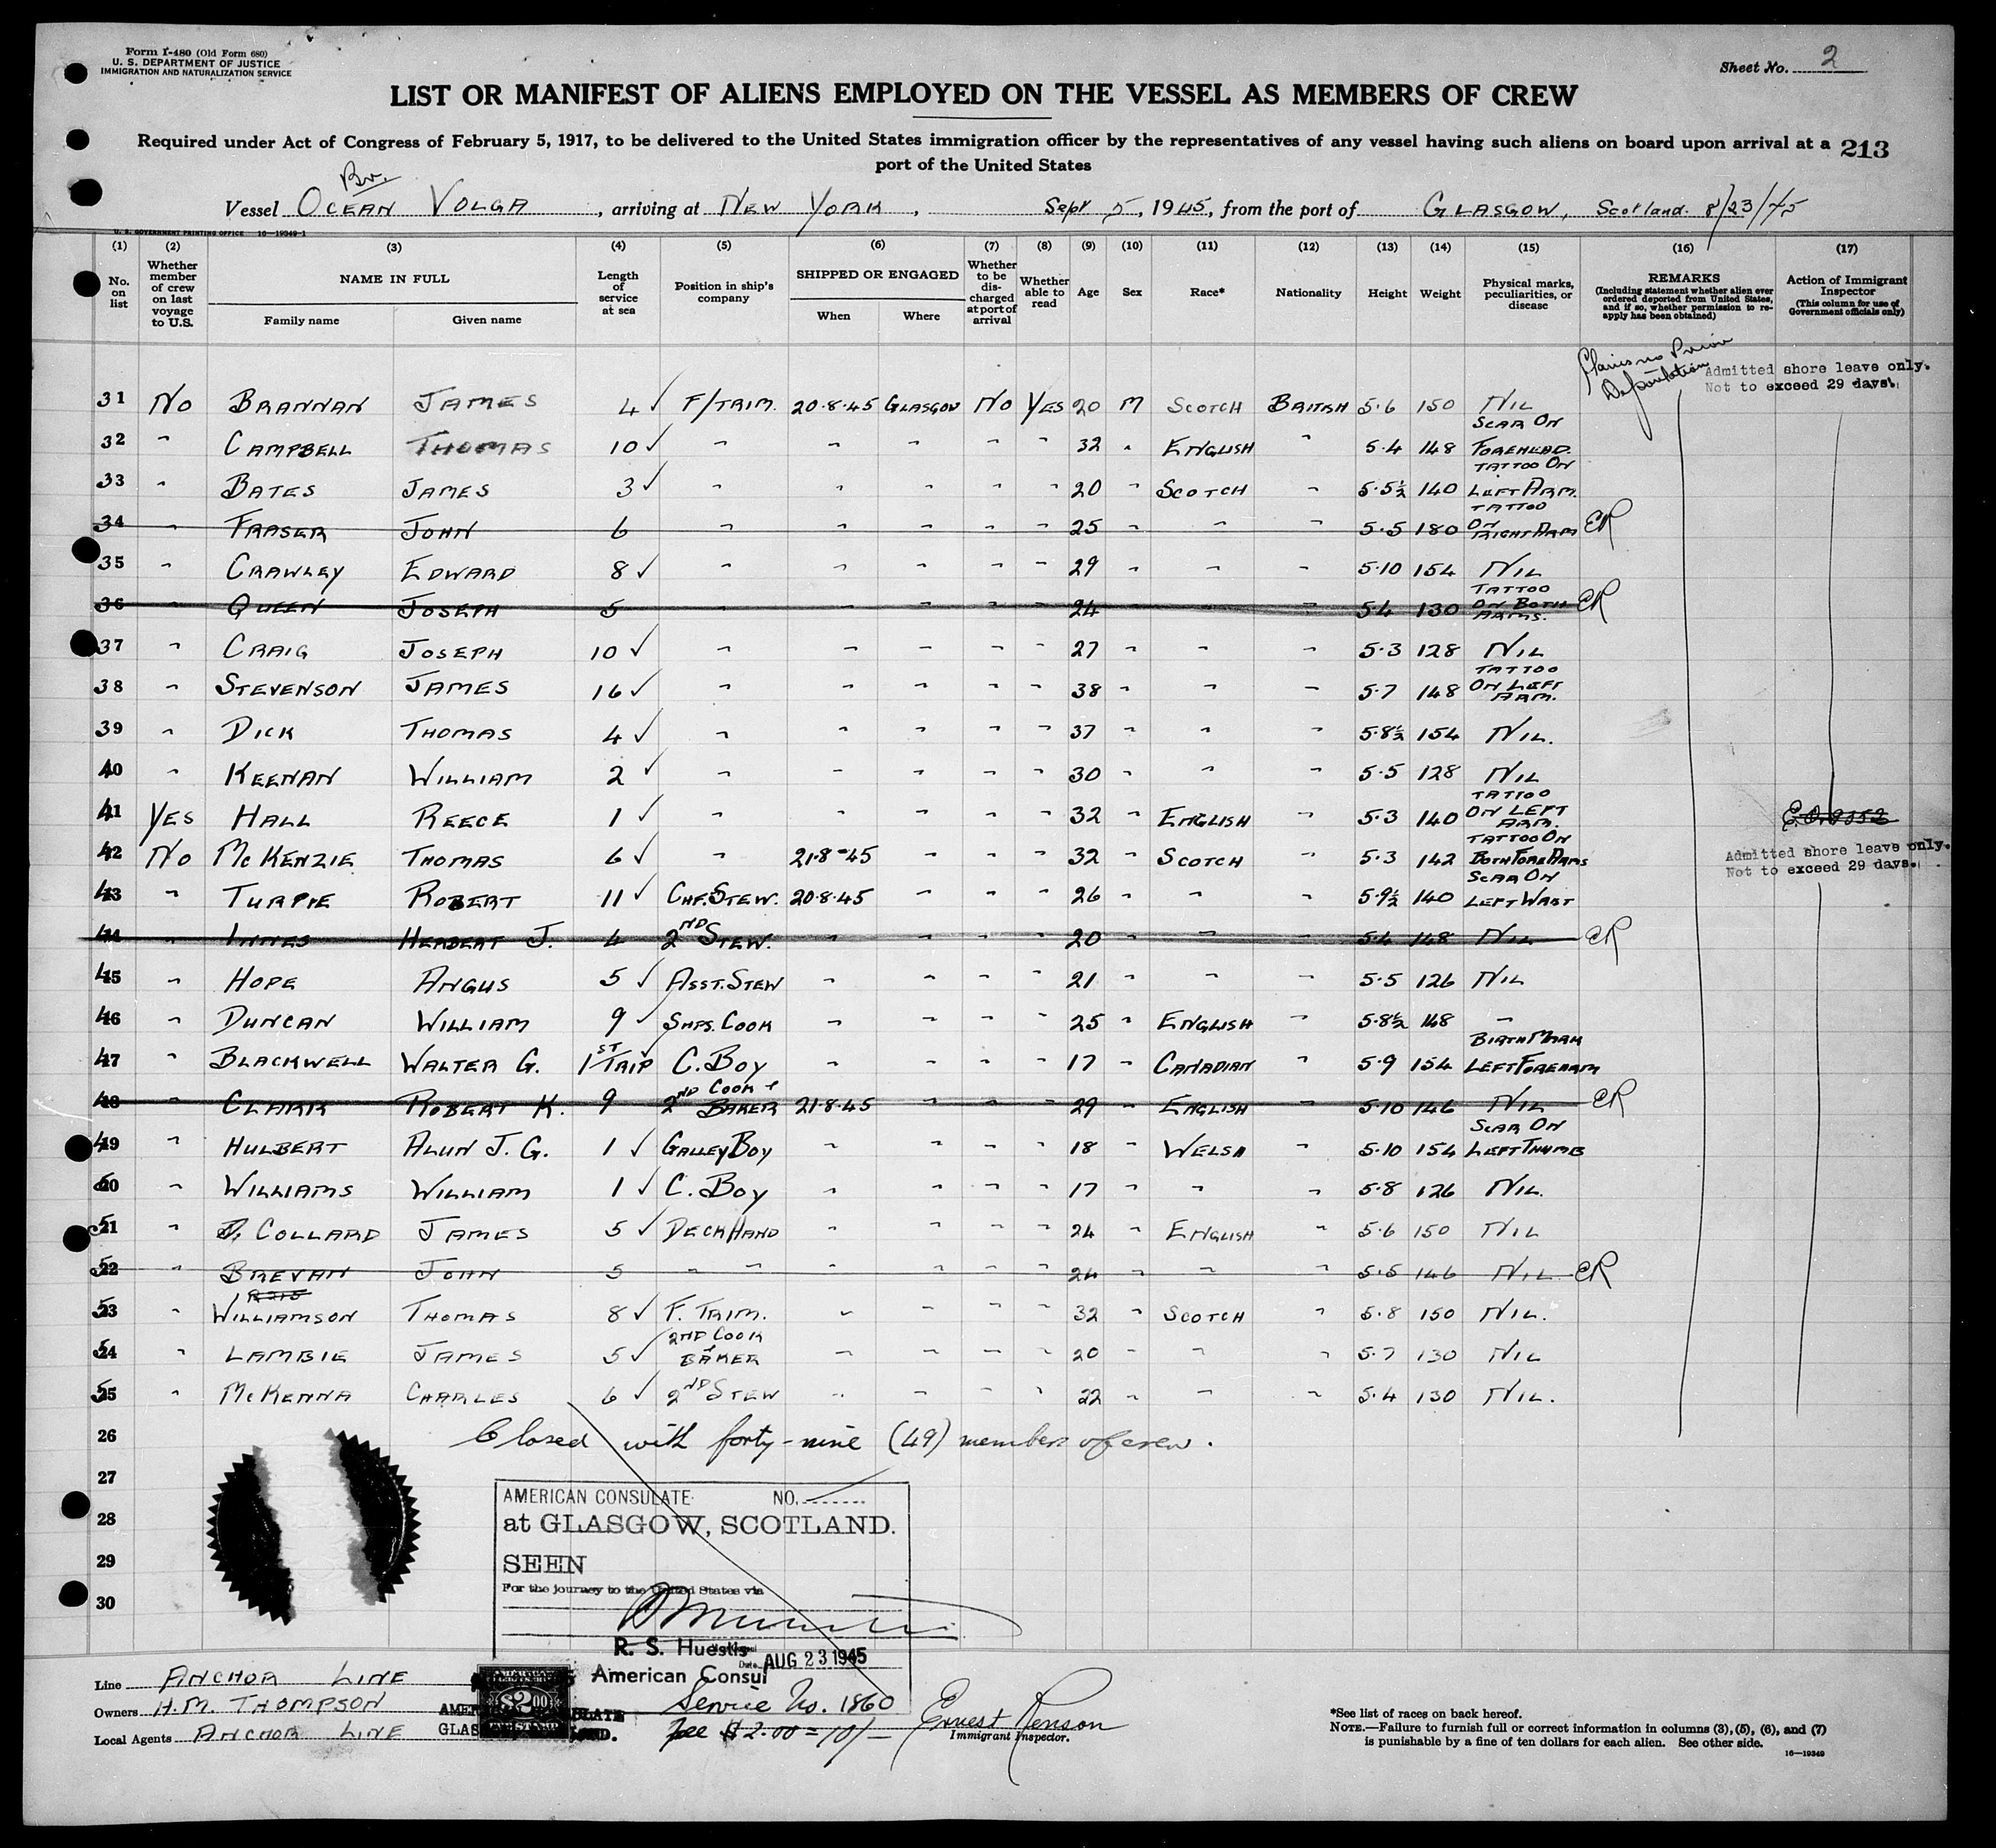 Form I-480 (Old Form 680)
U. S. DEPARTMENT OF JUSTICE
IMMIGRATION AND NATURALIZATION SERVICE
Sheet No. 2
LIST OR MANIFEST OF ALIENS EMPLOYED ON THE VESSEL AS MEMBERS OF CREW
Required under Act of Congress of February 5, 1917, to be delivered to the United States immigration officer by the representatives of any vessel having such aliens on board upon arrival at a
port of the United States
213
Br.
Vessel OCEAN VOLGA, arriving at NEW YORK, Sept 5, 1945, from the port of GLASGOW, Scotland. 8/23/45
U. S. GOVERNMENT PRINTING OFFICE 16—19349-1
(1) (2) (3) (4) (5) (6) (7) (8) (9) (10) (11) (12) (13) (14) (15) (16) (17)
No. on list
Whether member of crew on last voyage to U.S.
NAME IN FULL
Family name
Given name
Length of service at sea
Position in ship's company
SHIPPED OR ENGAGED
When
Where
Whether to be discharged at port of arrival
Whether able to read
Age
Sex
Race*
Nationality
Height
Weight
Physical marks, peculiarities, or disease
REMARKS
(Including statement whether alien ever ordered deported from United States, and if so, whether permission to re-apply has been obtained)
Action of Immigrant Inspector
(This column for use of Government officials only)
Claims no Prior
Deportation
Admitted shore leave only.
Not to exceed 29 days.
31 NO BRANNAN JAMES 4 ✓ F/TRIM. 20·8·45 GLASGOW NO YES 20 M SCOTCH BRITISH 5·6 150 NIL
32 " CAMPBELL THOMAS 10 ✓ " " " " " 32 " ENGLISH " 5·4 148 SCAR ON FOREHEAD.
33 " BATES JAMES 3 ✓ " " " " " 20 " SCOTCH " 5·5½ 140 TATTOO ON LEFT ARM.
34 " FRASER JOHN 6 " " " " " 25 " " " 5·5 180 TATTOO ON RIGHT ARM ER
35 " CRAWLEY EDWARD 8 ✓ " " " " " 29 " " " 5·10 154 NIL
36 " QUEEN JOSEPH 5 " " " " " 24 " " " 5·4 130 TATTOO ON BOTH ARMS. ER
37 " CRAIG JOSEPH 10 ✓ " " " " " 27 " " " 5·3 128 NIL
38 " STEVENSON JAMES 16 ✓ " " " " " 38 " " " 5·7 148 TATTOO ON LEFT ARM.
39 " DICK THOMAS 4 ✓ " " " " " 37 " " " 5·8½ 154 NIL.
40 " KEENAN WILLIAM 2 ✓ " " " " " 30 " " " 5·5 128 NIL
41 YES HALL REECE 1 ✓ " " " " " 32 " ENGLISH " 5·3 140 TATTOO ON LEFT ARM. E.O. 9352
42 NO McKENZIE THOMAS 6 ✓ " 21·8·45 " " " 32 " SCOTCH " 5·3 142 TATTOO ON BOTH FOREARMS
Admitted shore leave only.
Not to exceed 29 days.
43 " TURPIE ROBERT 11 ✓ CHF. STEW. 20·8·45 " " " 26 " " " 5·9½ 140 SCAR ON LEFT WRIST
44 " INNES HERBERT J. 4 2ND STEW. " " " " 20 " " " 5·4 148 NIL ER
45 " HOPE ANGUS 5 ✓ ASST. STEW " " " " 21 " " " 5·5 126 NIL
46 " DUNCAN WILLIAM 9 ✓ SHPS. COOK " " " " 25 " ENGLISH " 5·8½ 148 "
47 " BLACKWELL WALTER G. 1ST TRIP ✓ C. BOY " " " " 17 " CANADIAN " 5·9 154 BIRTH MARK LEFT FOREARM
48 " CLARK ROBERT K. 9 2ND COOK & BAKER 21·8·45 " " " 29 " ENGLISH " 5·10 146 NIL ER
49 " HULBERT ALUN J. G. 1 ✓ GALLEY BOY " " " " 18 " WELSH " 5·10 154 SCAR ON LEFT THUMB
50 " WILLIAMS WILLIAM 1 ✓ C. BOY " " " " 17 " " " 5·8 126 NIL.
51 " COLLARD JAMES 5 ✓ DECK HAND " " " " 24 " ENGLISH " 5·6 150 NIL
52 " BREVAN JOHN 5 " " " " " " 24 " " " 5·5 146 NIL ER
53 " WILLIAMSON THOMAS 8 ✓ F. TRIM. " " " " 32 " SCOTCH " 5·8 150 NIL.
54 " LAMBIE JAMES 5 ✓ 2ND COOK & BAKER " " " " 20 " " " 5·7 130 NIL
55 " McKENNA CHARLES 6 ✓ 2ND STEW " " " " 22 " " " 5·4 130 NIL.
26 Closed with forty-nine (49) members of crew.
27
28
29
30
AMERICAN CONSULATE NO.
at GLASGOW, SCOTLAND.
SEEN
For the journey to the United States via
R. S. Huestis
American Consul
Date AUG 23 1945
Service No. 1860
fee $2.00 = 10/-
$2.00
Line ANCHOR LINE
Owners H.M. THOMPSON
Local Agents ANCHOR LINE
Ernest Renson
Immigrant Inspector.
*See list of races on back hereof.
NOTE.—Failure to furnish full or correct information in columns (3), (5), (6), and (7)
is punishable by a fine of ten dollars for each alien. See other side.
16—19349